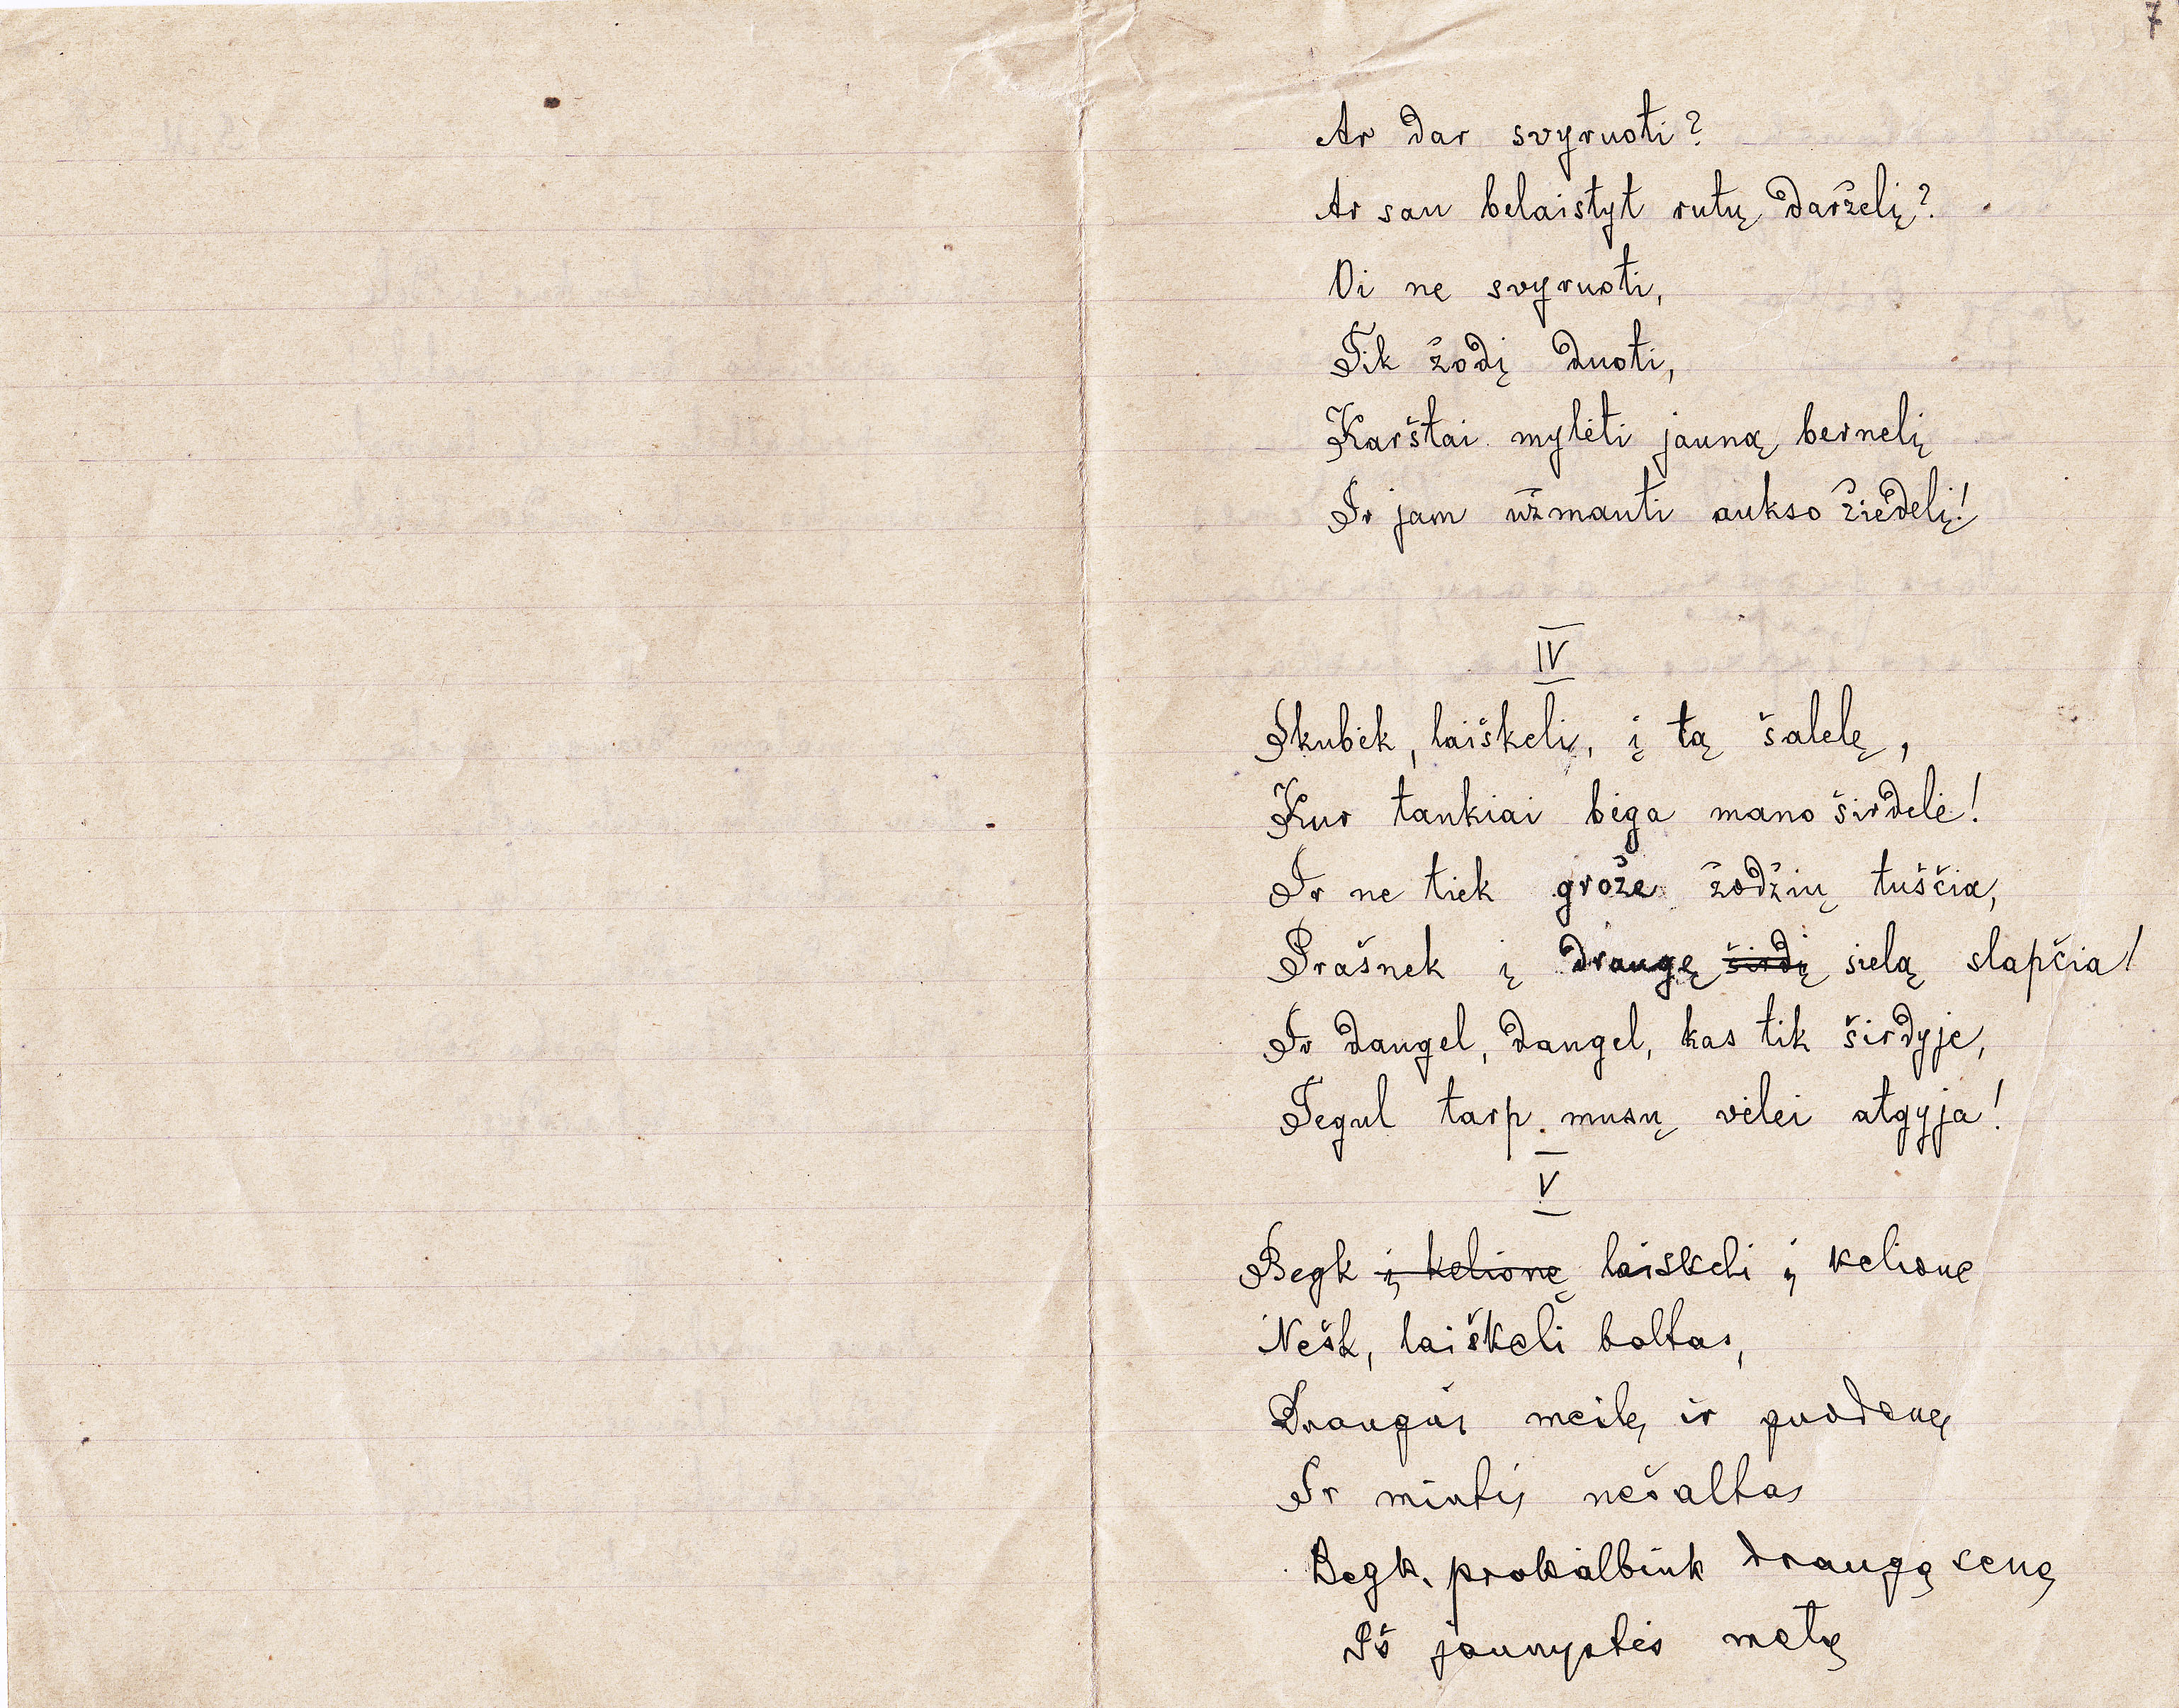 7
Ar dar svyruoti?
Ar sau belaistyt rutų darželį?
Oi ne svyruoti,
Tik žodį duoti,
Karštai mylėti jauną bernelį
Ir jam užmauti aukso žiedelį!
IV
Skubėk, laiškeli, į tą šalelę,
Kur tankiai bėga mano širdelė!
Ir ne tiek grože žodžių tuščia,
Prašnek į draugę širdį sielą slapčia!
Ir daugel, daugel, kas tik širdyje,
Tegul tarp musų vėlei atgyja!
V
Begk į kelionę laiskeli į kelione
Nešk, laiškeli baltas,
Draugūs meilę ir guodonę
Ir mintis nešaltas
Begk, prakalbink draugą seną
Iš jaunystės metų